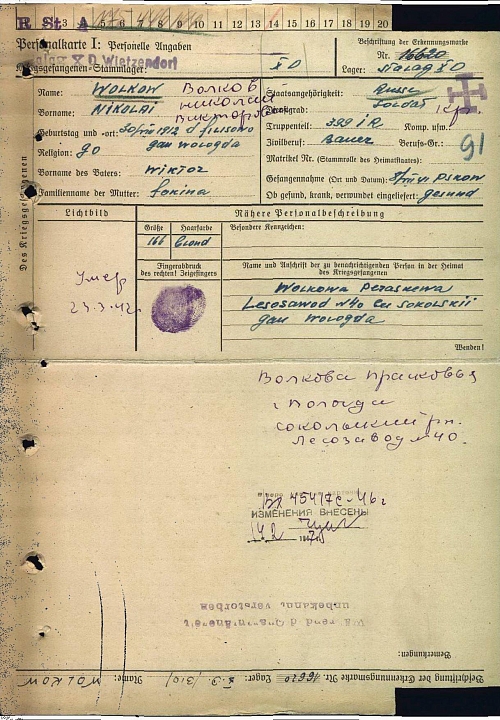 R. St. A
3 5 6 7 8 9 10 11 12 13 14 15 16 17 18 19 20
Personalkarte I: Personelle Angaben
Stalag X D Wietzendorf
Kriegsgefangenen-Stammlager: XD
Beschriftung der Erkennungsmarke
Nr. 16620
Lager: Stalag XD
Des Kriegsgefangenen
Name: WOLKOW Волков
Vorname: NIKOLAI николай
Викторович
Geburtstag und -ort: 1912 d filisowo
gau wologda
Religion: go
Vorname des Vaters: WIKTOR
Familienname der Mutter: Fokina
Staatsangehörigkeit: Russe
Dienstgrad: Soldat
Truppenteil: 399 IR Komp. usw.:
Zivilberuf: Bauer Berufs-Gr.:
91
Matrikel Nr. (Stammrolle des Heimatstaates):
Gefangennahme (Ort und Datum): Pskow
Ob gesund, krank, verwundet eingeliefert: gesund
Lichtbild
Nähere Personalbeschreibung
Größe Haarfarbe Besondere Kennzeichen:
166 blond
Fingerabdruck
des rechten! Zeigefingers
Name und Anschrift der zu benachrichtigenden Person in der Heimat
des Kriegsgefangenen
Умер
23.3.42г.
Wolkowa Peraskewa
Lesosawod N40 Sokolskii
gau Wologda
Wenden!
Волкова Прасковья
г. Вологда
Сокольский рн.
Лесозавод №40.
45417с-46г
ИЗМЕНЕНИЯ ВНЕСЕНЫ
unbekannt verstorben
Bemerkungen:
Beschriftung der Erkennungsmarke Nr. 16620 Lager: X D (310) Name: WOLKOW